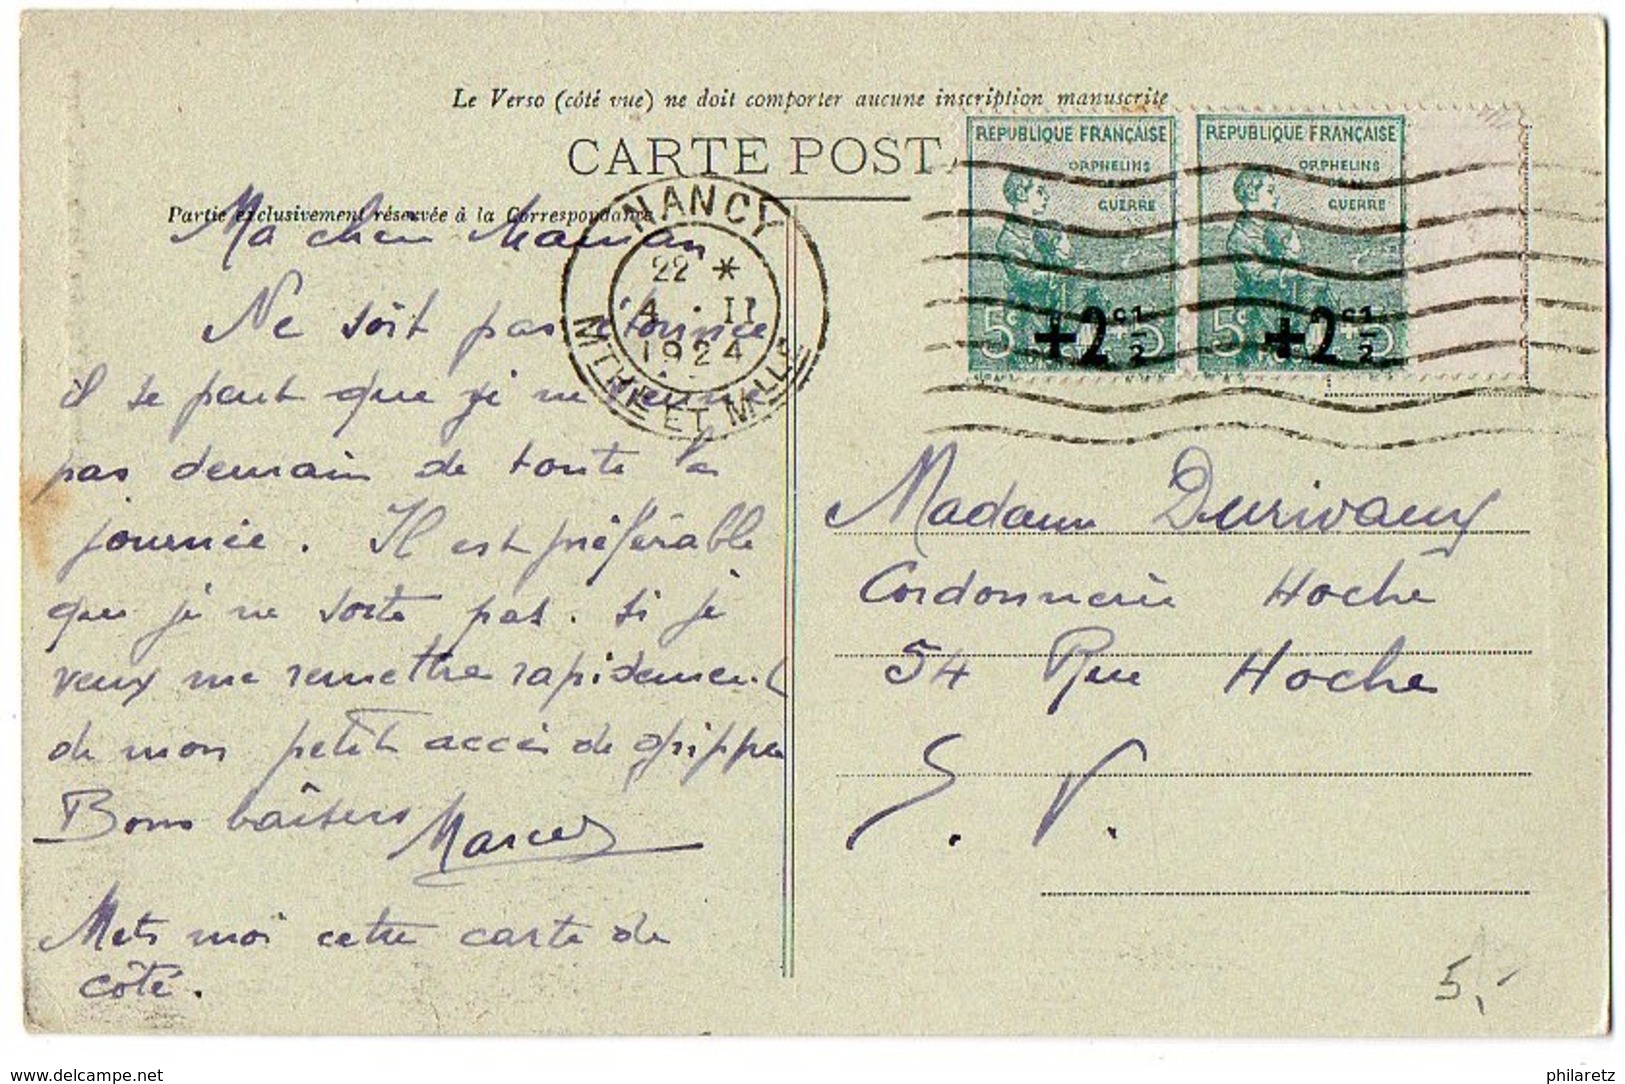 Le Verso (côté vue) ne doit comporter aucune inscription manuscrite
CARTE POSTA
Partie exclusivement réservée à la Correspondance
Ma chère Maman
Ne soit pas étonnée
il se peut que je ne vienne
pas demain de toute la
journée. Il est préférable
que je ne sorte pas. si je
veux me remettre rapidement
de mon petit accès de grippe
Bons baisers Marcel
Mets moi cette carte de
côté.
NANCY
22 *
4 - II
1924
MTHE ET MLLE
REPUBLIQUE FRANÇAISE
ORPHELINS
DE LA
GUERRE
5c +2c 1/2 +5
REPUBLIQUE FRANÇAISE
ORPHELINS
DE LA
GUERRE
5c +2c 1/2 +5
Madame Durivaux
Cordonnerie Hoche
54 Rue Hoche
E. V.
5,-
www.delcampe.net
philaretz